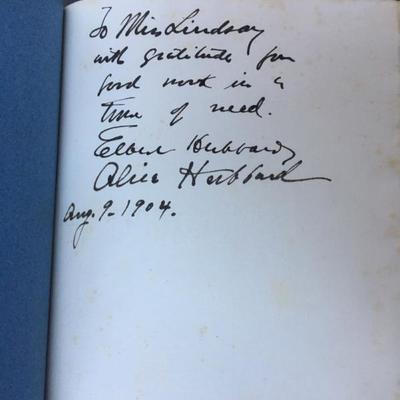 To Miss Lindsay
with gratitude for
good work in a
time of need.
Elbert Hubbard
Alice Hubbard
Aug. 9-1904.